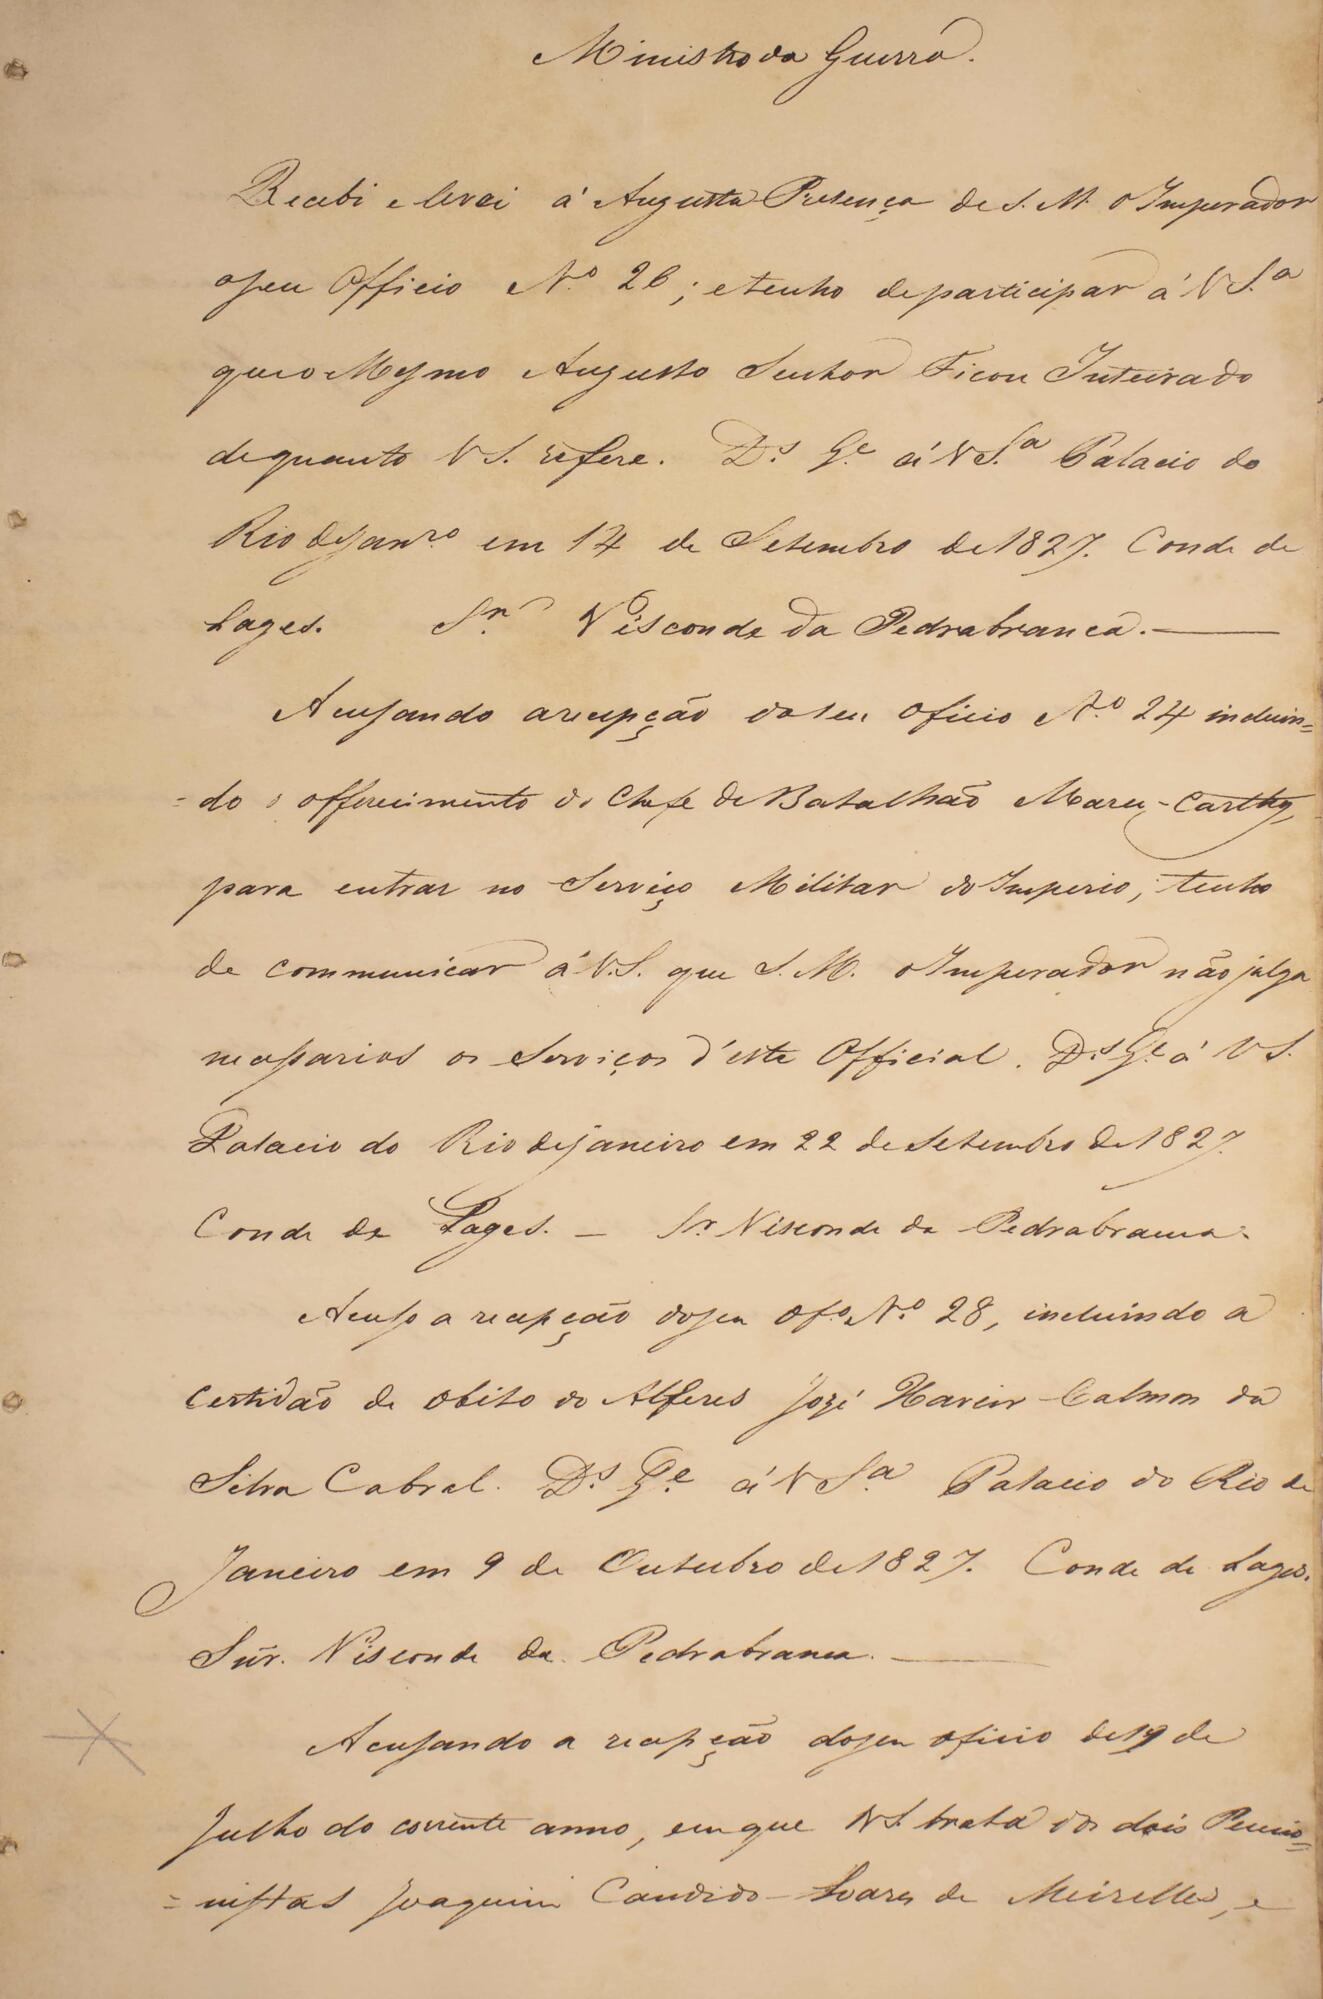 Ministro da Guerra.
Recebi e levei á Augusta Presença de S. M. o Imperador
o seu Officio N.º 26; e tenho de participar á V S.ª
que o Mesmo Augusto Senhor Ficou Inteirado
de quanto V S. refere. D.s G.e á V S.ª Palacio do
Rio de Jan.ro em 14 de Setembro de 1827. Conde de
Lages. Sr. Visconde da Pedrabranca.
Acusando a recepção do seu oficio N.º 24 incluin=
=do o offerecimento do Chefe de Batalhão -Carthy,
para entrar no Serviço Militar do Imperio, tenho
de communicar á V.S. que S. M. o Imperador não julga
necessarios os Serviços d'este Official. D.s G.e á V S.
Palacio do Rio de janeiro em 22 de Setembro de 1827.
Conde de Lages. — Sr. Visconde da Pedrabranca.
Acuso a recepção do seu Of.º N.º 28, incluindo a
certidão de obito do Alferes Jozé Xavier Calmon da
Silva Cabral. D.s G.e á V S.ª Palacio do Rio de
Janeiro em 9 de Outubro de 1827. Conde de Lages.
Sñr. Visconde da Pedrabranca.
Acusando a recepção do seu oficio de 19 de
Julho do corrente anno, em que V S. trata dos dois Pencio=
=nistas Joaquim Candido Soares de Meirelles, e